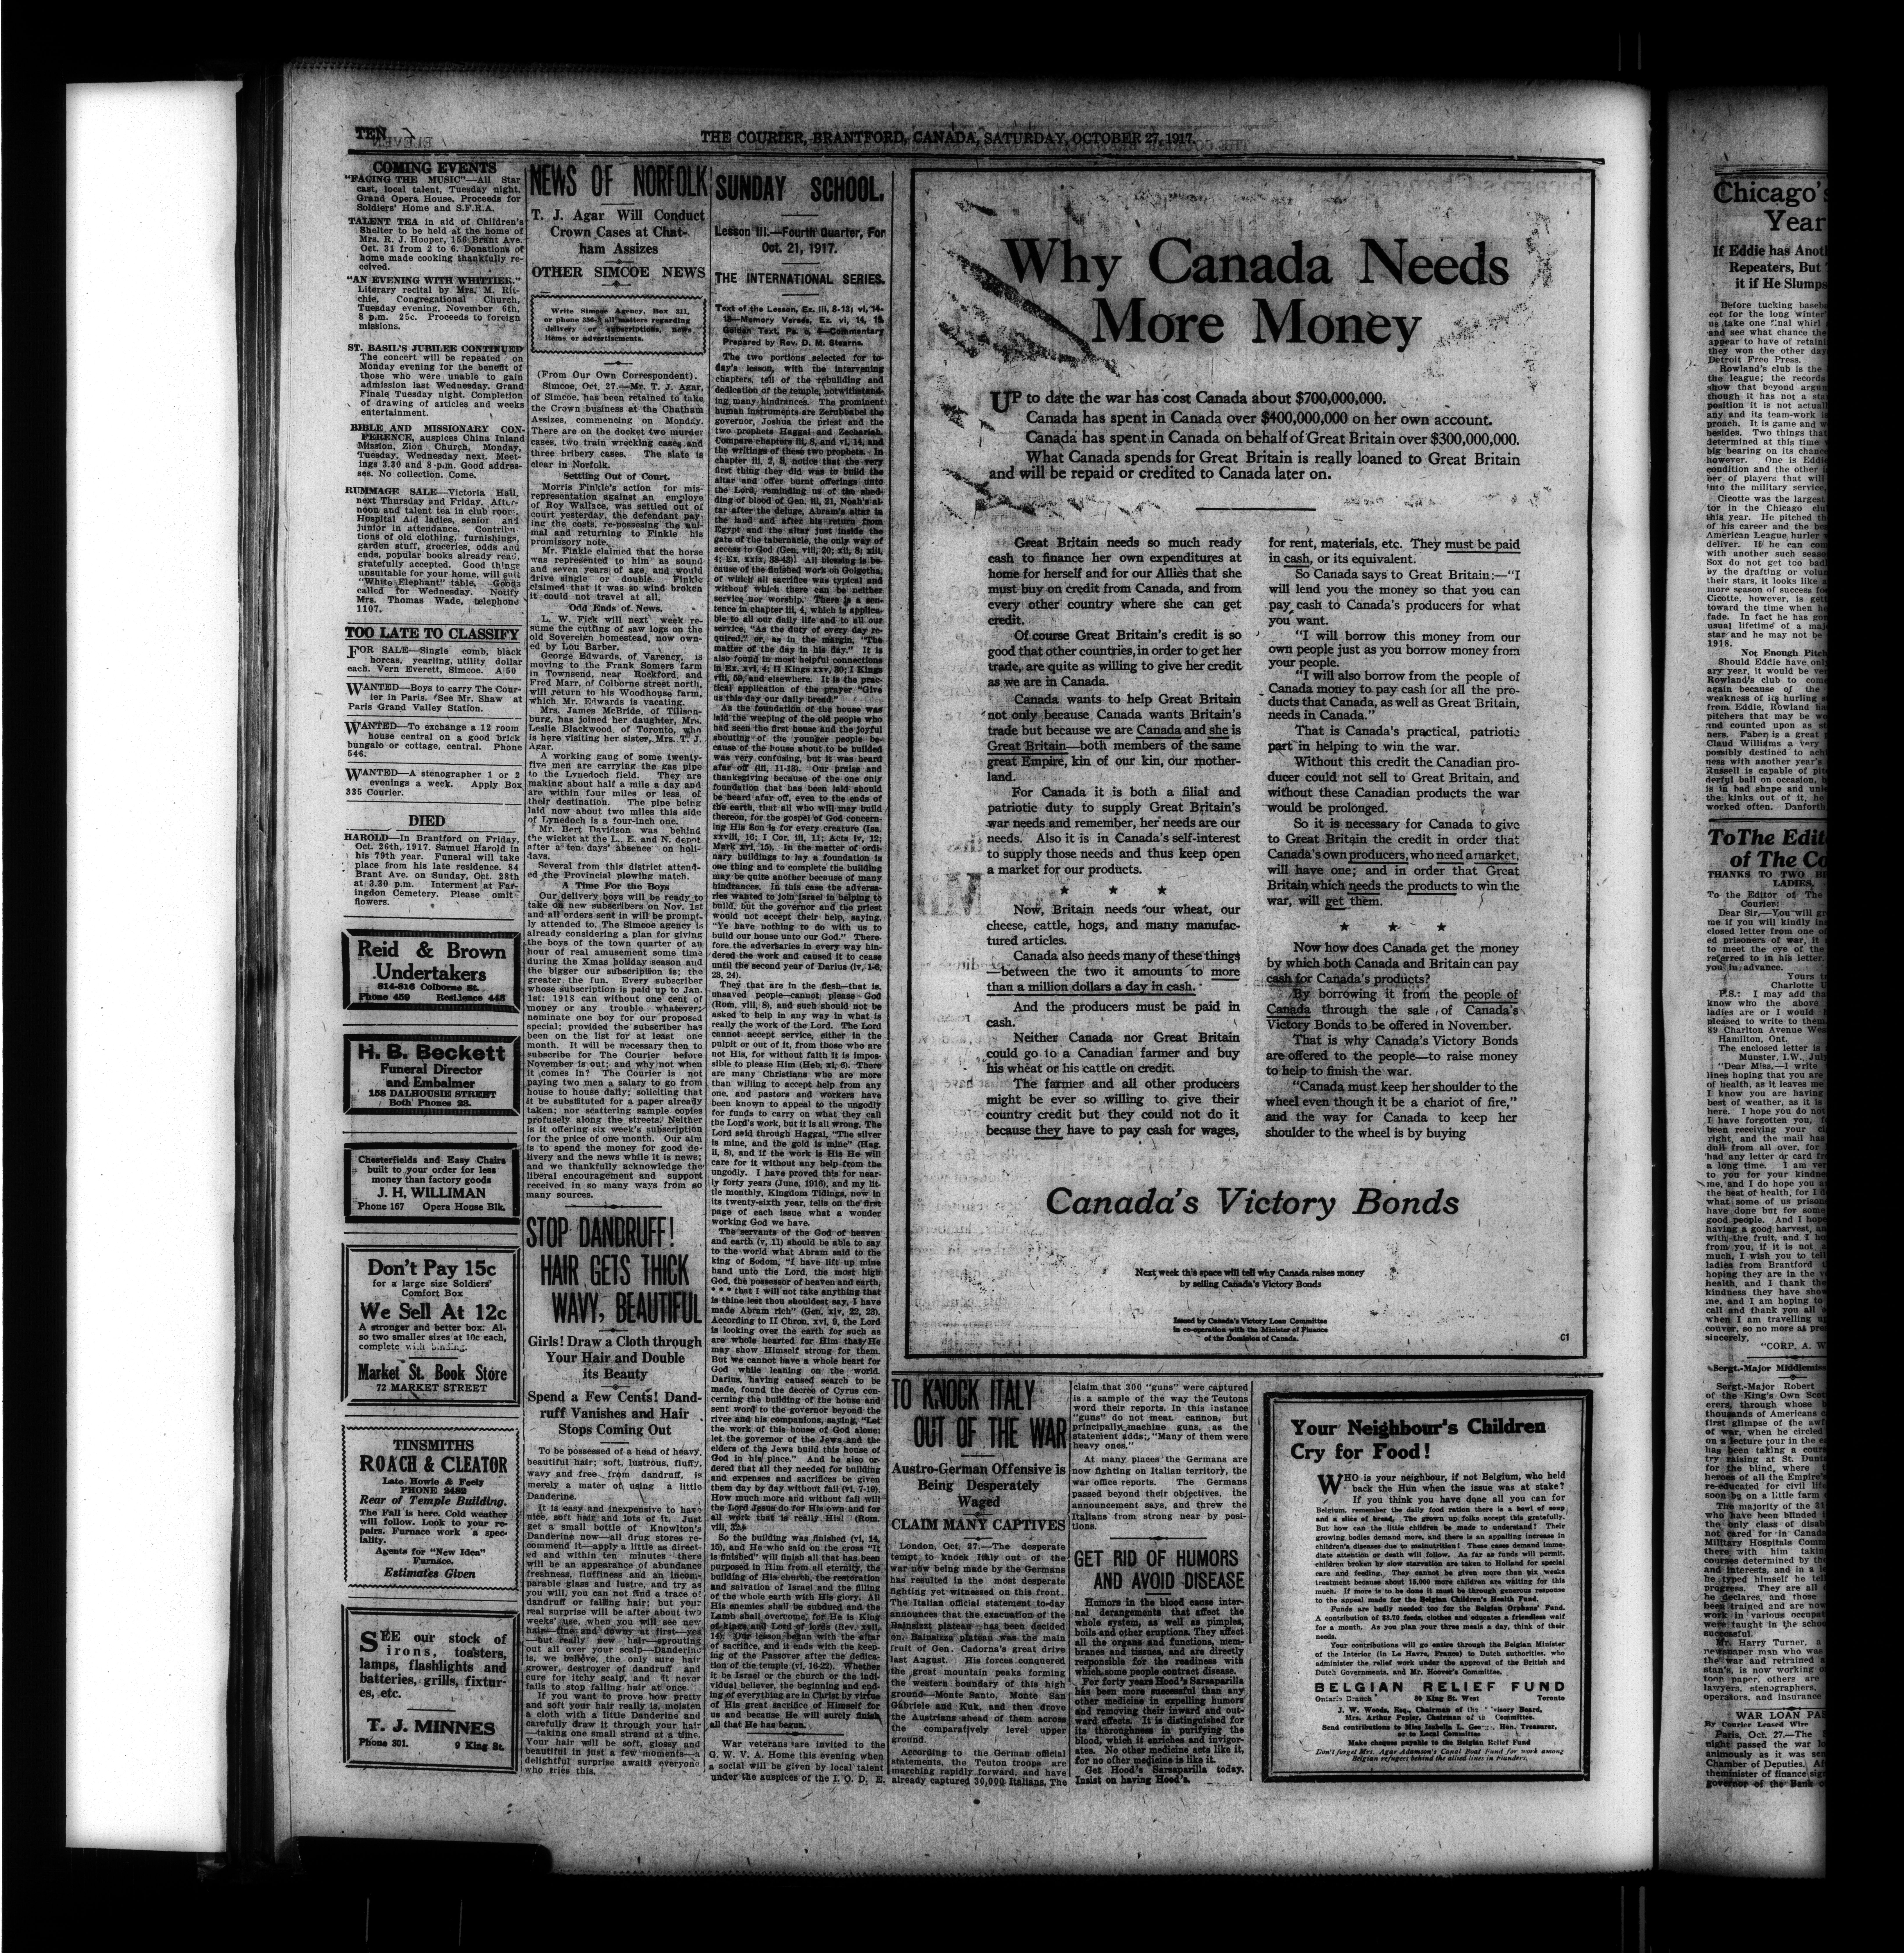 TEN
THE COURIER, BRANTFORD, CANADA, SATURDAY, OCTOBER 27, 1917.
COMING EVENTS
"FACING THE MUSIC"—All Star
cast, local talent, Tuesday night,
Grand Opera House. Proceeds for
Soldiers' Home and S.F.R.A.
TALENT TEA in aid of Children's
Shelter to be held at the home of
Mrs. R. J. Hooper, 156 Brant Ave.
Oct. 31 from 2 to 6. Donations of
home made cooking thankfully re-
ceived.
"AN EVENING WITH WHITTIER."
Literary recital by Mrs. M. Rit-
chie, Congregational Church,
Tuesday evening, November 6th,
8 p.m. 25c. Proceeds to foreign
missions.
ST. BASIL'S JUBILEE CONTINUED
The concert will be repeated on
Monday evening for the benefit of
those who were unable to gain
admission last Wednesday. Grand
Finale Tuesday night. Completion
of drawing of articles and weeks
entertainment.
BIBLE AND MISSIONARY CON-
FERENCE, auspices China Inland
Mission, Zion Church, Monday,
Tuesday, Wednesday next. Meet-
ings 3.30 and 8 p.m. Good addres-
ses. No collection. Come.
RUMMAGE SALE—Victoria Hall,
next Thursday and Friday. After-
noon and talent tea in club room.
Hospital Aid ladies, senior and
junior in attendance. Contribu-
tions of old clothing, furnishings,
garden stuff, groceries, odds and
ends, popular books already read,
gratefully accepted. Good things
unsuitable for your home, will suit
"White Elephant" table. Goods
called for Wednesday. Notify
Mrs. Thomas Wade, telephone
1107.
TOO LATE TO CLASSIFY
FOR SALE—Single comb, black
horcas, yearling, utility dollar
each. Vern Everett, Simcoe. A|50
WANTED—Boys to carry The Cour-
ier in Paris. See Mr. Shaw at
Paris Grand Valley Station.
WANTED—To exchange a 12 room
house central on a good brick
bungalo or cottage, central. Phone
546.
WANTED—A stenographer 1 or 2
evenings a week. Apply Box
335 Courier.
DIED
HAROLD—In Brantford on Friday,
Oct. 26th, 1917. Samuel Harold in
his 79th year. Funeral will take
place from his late residence. 84
Brant Ave. on Sunday, Oct. 28th
at 3.30 p.m. Interment at Far-
ingdon Cemetery. Please omit
flowers.
Reid & Brown
Undertakers
814-816 Colborne St.
Phone 459 Residence 448
H. B. Beckett
Funeral Director
and Embalmer
158 DALHOUSIE STREET
Both Phones 23.
Chesterfields and Easy Chairs
built to your order for less
money than factory goods
J. H. WILLIMAN
Phone 167 Opera House Blk.
Don't Pay 15c
for a large size Soldiers'
Comfort Box
We Sell At 12c
A stronger and better box. Al-
so two smaller sizes at 10c each,
complete with binding.
Market St. Book Store
72 MARKET STREET
TINSMITHS
ROACH & CLEATOR
Late Howie & Feely
PHONE 2482
Rear of Temple Building.
The Fall is here. Cold weather
will follow. Look to your re-
pairs. Furnace work a spec-
iality.
Agents for "New Idea"
Furnace.
Estimates Given
SEE our stock of
irons, toasters,
lamps, flashlights and
batteries, grills, fixtur-
es, etc.
T. J. MINNES
Phone 301. 9 King St.
NEWS OF NORFOLK
T. J. Agar Will Conduct
Crown Cases at Chat-
ham Assizes
OTHER SIMCOE NEWS
Write Simcoe Agency, Box 311,
or phone 356-3 all matters regarding
delivery or subscriptions, news
items or advertisements.
(From Our Own Correspondent).
Simcoe, Oct. 27.—Mr. T. J. Agar,
of Simcoe, has been retained to take
the Crown business at the Chatham
Assizes, commencing on Monday.
There are on the docket two murder
cases, two train wrecking cases and
three bribery cases. The slate is
clear in Norfolk.
Settling Out of Court.
Morris Finkle's action for mis-
representation against an employe
of Roy Wallace, was settled out of
court yesterday, the defendant pay-
ing the costs, re-possesing the ani-
mal and returning to Finkle his
promissory note.
Mr. Finkle claimed that the horse
was represented to him as sound
and seven years of age, and would
drive single or double. Finkle
claimed that it was so wind broken
it could not travel at all.
Odd Ends of News.
L. W. Fick will next week re-
sume the cutting of saw logs on the
old Sovereign homestead, now own-
ed by Lou Barber.
George Edwards, of Varency, is
moving to the Frank Somers farm
in Townsend, near Rockford, and
Fred Marr, of Colborne street north,
will return to his Woodhouse farm,
which Mr. Edwards is vacating.
Mrs. James McBride, of Tillson-
burg, has joined her daughter, Mrs.
Leslie Blackwood, of Toronto, who
is here visiting her sister, Mrs. T. J.
Agar.
A working gang of some twenty-
five men are carrying the gas pipe
to the Lynedoch field. They are
making about half a mile a day and
are within four miles or less, of
their destination. The pipe being
laid now about two miles this side
of Lynedoch is a four-inch one.
Mr. Bert Davidson was behind
the wicket at the L. E. and N. depot
after a ten days' absence on holi-
days.
Several from this district attend-
ed the Provincial plowing match.
A Time For the Boys
Our delivery boys will be ready to
take on new subscribers on Nov. 1st
and all orders sent in will be prompt-
ly attended to. The Simcoe agency is
already considering a plan for giving
the boys of the town quarter of an
hour of real amusement some time
during the Xmas holiday season and
the bigger our subscription is; the
greater the fun. Every subscriber
whose subscription is paid up to Jan.
1st: 1918 can without one cent of
money or any trouble whatever,
nominate one boy for our proposed
special; provided the subscriber has
been on the list for at least one
month. It will be necessary then to
subscribe for The Courier before
November is out; and why not when
it comes in? The Courier is not
paying two men a salary to go from
house to house daily; soliciting that
it be substituted for a paper already
taken; nor scattering sample copies
profusely along the streets. Neither
is it offering six week's subscription
for the price of one month. Our aim
is to spend the money for good de-
livery and the news while it is news;
and we thankfully acknowledge the
liberal encouragement and support
received in so many ways from so
many sources.
STOP DANDRUFF!
HAIR GETS THICK
WAVY, BEAUTIFUL
Girls! Draw a Cloth through
Your Hair and Double
its Beauty
Spend a Few Cents! Dand-
ruff Vanishes and Hair
Stops Coming Out
To be possessed of a head of heavy,
beautiful hair; soft, lustrous, fluffy,
wavy and free from dandruff, is
merely a mater of using a little
Danderine.
It is easy and inexpensive to have
nice, soft hair and lots of it. Just
get a small bottle of Knowlton's
Danderine now—all drug stores re-
commend it—apply a little as direct-
ed and within ten minutes there
will be an appearance of abundance
freshness, fluffiness and an incom-
parable glass and lustre, and try as
you will, you can not find a trace of
dandruff or falling hair; but your
real surprise will be after about two
weeks' use, when you will see new
hair—fine and downy at first—yes
—but really new hair—sprouting
out all over your scalp—Danderine
is, we believe, the only sure hair
grower, destroyer of dandruff and
cure for itchy scalp, and it never
fails to stop falling hair at once.
If you want to prove how pretty
and soft your hair really is, moisten
a cloth with a little Danderine and
carefully draw it through your hair
—taking one small strand at a time.
Your hair will be soft, glossy and
beautiful in just a few moments—a
delightful surprise awaits everyone
who tries this.
SUNDAY SCHOOL.
Lesson III.—Fourth Quarter, For
Oct. 21, 1917.
THE INTERNATIONAL SERIES.
Text of the Lesson, Ez. iii, 8-13; vi, 14-
18—Memory Verses, Ez. vi, 14, 15
Golden Text, Ps. c, 4—Commentary
Prepared by Rev. D. M. Stearns.
The two portions selected for to-
day's lesson, with the intervening
chapters, tell of the rebuilding and
dedication of the temple, notwithstand-
ing many hindrances. The prominent
human instruments are Zerubbabel the
governor, Joshua the priest and the
two prophets Haggai and Zechariah.
Compare chapters iii, 8, and vi, 14, and
the writings of these two prophets. In
chapter iii, 2, 3, notice that the very
first thing they did was to build the
altar and offer burnt offerings unto
the Lord, reminding us of the shed-
ding of blood of Gen. iii, 21, Noah's al-
tar after the deluge, Abram's altar in
the land and after his return from
Egypt and the altar just inside the
gate of the tabernacle, the only way of
access to God (Gen. viii, 20; xii, 8; xiii,
4; Ex. xxix, 38-43). All blessing is be-
cause of the finished work on Golgotha,
of which all sacrifice was typical and
without which there can be neither
service nor worship. There is a sen-
tence in chapter iii, 4, which is applica-
ble to all our daily life and to all our
service, "As the duty of every day re-
quired," or, as in the margin, "The
matter of the day in his day." It is
also found in most helpful connections
in Ex. xvi, 4; II Kings xxv, 30; I Kings
viii, 59, and elsewhere. It is the prac-
tical application of the prayer "Give
us this day our daily bread."
As the foundation of the house was
laid the weeping of the old people who
had seen the first house and the joyful
shouting of the younger people be-
cause of the house about to be builded
was very confusing, but it was heard
afar off (iii, 11-13). Our praise and
thanksgiving because of the one only
foundation that has been laid should
be heard afar off, even to the ends of
the earth, that all who will may build
thereon, for the gospel of God concern-
ing His Son is for every creature (Isa.
xxviii, 16; I Cor. iii, 11; Acts iv, 12;
Mark xvi, 15). In the matter of ordi-
nary buildings to lay a foundation is
one thing and to complete the building
may be quite another because of many
hindrances. In this case the adversa-
ries wanted to join Israel in helping to
build, but the governor and the priest
would not accept their help, saying,
"Ye have nothing to do with us to
build our house unto our God." There-
fore the adversaries in every way hin-
dered the work and caused it to cease
until the second year of Darius (iv, 1-6,
23, 24).
They that are in the flesh—that is,
unsaved people—cannot please God
(Rom. viii, 8), and such should not be
asked to help in any way in what is
really the work of the Lord. The Lord
cannot accept service, either in the
pulpit or out of it, from those who are
not His, for without faith it is impos-
sible to please Him (Heb. xi, 6). There
are many Christians who are more
than willing to accept help from any
one, and pastors and workers have
been known to appeal to the ungodly
for funds to carry on what they call
the Lord's work, but it is all wrong. The
Lord said through Haggai, "The silver
is mine, and the gold is mine" (Hag.
ii, 8), and if the work is His He will
care for it without any help from the
ungodly. I have proved this for near-
ly forty years (June, 1916), and my lit-
tle monthly, Kingdom Tidings, now in
its twenty-sixth year, tells on the first
page of each issue what a wonder
working God we have.
The servants of the God of heaven
and earth (v, 11) should be able to say
to the world what Abram said to the
king of Sodom, "I have lift up mine
hand unto the Lord, the most high
God, the possessor of heaven and earth,
* * * that I will not take anything that
is thine lest thou shouldest say, I have
made Abram rich" (Gen. xiv, 22, 23).
According to II Chron. xvi, 9, the Lord
is looking over the earth for such as
are whole hearted for Him that He
may show Himself strong for them.
But we cannot have a whole heart for
God while leaning on the world.
Darius, having caused search to be
made, found the decree of Cyrus con-
cerning the building of the house and
sent word to the governor beyond the
river and his companions, saying, "Let
the work of this house of God alone;
let the governor of the Jews and the
elders of the Jews build this house of
God in his place." And he also or-
dered that all they needed for building
and expenses and sacrifices be given
them day by day without fail (vi, 7-10).
How much more and without fail will
the Lord Jesus do for His own and for
all work that is really His! (Rom.
viii, 32.)
So the building was finished (vi, 14,
15), and He who said on the cross "It
is finished" will finish all that has been
purposed in Him from all eternity, the
building of His church, the restoration
and salvation of Israel and the filling
of the whole earth with His glory. All
His enemies shall be subdued and the
Lamb shall overcome, for He is King
of kings and Lord of lords (Rev. xvii,
14). Our lesson began with the altar
of sacrifice, and it ends with the keep-
ing of the Passover after the dedica-
tion of the temple (vi, 16-22). Whether
it be Israel or the church or the indi-
vidual believer, the beginning and end-
ing of everything are in Christ by virtue
of His great sacrifice of Himself for
us and because He will surely finish
all that He has begun.
War veterans are invited to the
G. W. V. A. Home this evening when
a social will be given by local talent
under the auspices of the I. O. D. E.
Why Canada Needs
More Money
UP to date the war has cost Canada about $700,000,000.
Canada has spent in Canada over $400,000,000 on her own account.
Canada has spent in Canada on behalf of Great Britain over $300,000,000.
What Canada spends for Great Britain is really loaned to Great Britain
and will be repaid or credited to Canada later on.
Great Britain needs so much ready
cash to finance her own expenditures at
home for herself and for our Allies that she
must buy on credit from Canada, and from
every other country where she can get
credit.
Of course Great Britain's credit is so
good that other countries, in order to get her
trade, are quite as willing to give her credit
as we are in Canada.
Canada wants to help Great Britain
not only because Canada wants Britain's
trade but because we are Canada and she is
Great Britain—both members of the same
great Empire, kin of our kin, our mother-
land.
For Canada it is both a filial and
patriotic duty to supply Great Britain's
war needs and remember, her needs are our
needs. Also it is in Canada's self-interest
to supply those needs and thus keep open
a market for our products.
★ ★ ★
Now, Britain needs our wheat, our
cheese, cattle, hogs, and many manufac-
tured articles.
Canada also needs many of these things
—between the two it amounts to more
than a million dollars a day in cash.
And the producers must be paid in
cash.
Neither Canada nor Great Britain
could go to a Canadian farmer and buy
his wheat or his cattle on credit.
The farmer and all other producers
might be ever so willing to give their
country credit but they could not do it
because they have to pay cash for wages,
for rent, materials, etc. They must be paid
in cash, or its equivalent.
So Canada says to Great Britain:—"I
will lend you the money so that you can
pay cash to Canada's producers for what
you want.
"I will borrow this money from our
own people just as you borrow money from
your people.
"I will also borrow from the people of
Canada money to pay cash for all the pro-
ducts that Canada, as well as Great Britain,
needs in Canada."
That is Canada's practical, patriotic
part in helping to win the war.
Without this credit the Canadian pro-
ducer could not sell to Great Britain, and
without these Canadian products the war
would be prolonged.
So it is necessary for Canada to give
to Great Britain the credit in order that
Canada's own producers, who need a market,
will have one; and in order that Great
Britain which needs the products to win the
war, will get them.
★ ★ ★
Now how does Canada get the money
by which both Canada and Britain can pay
cash for Canada's products?
By borrowing it from the people of
Canada through the sale of Canada's
Victory Bonds to be offered in November.
That is why Canada's Victory Bonds
are offered to the people—to raise money
to help to finish the war.
"Canada must keep her shoulder to the
wheel even though it be a chariot of fire,"
and the way for Canada to keep her
shoulder to the wheel is by buying
Canada's Victory Bonds
Next week this space will tell why Canada raises money
by selling Canada's Victory Bonds
Issued by Canada's Victory Loan Committee
in co-operation with the Minister of Finance
of the Dominion of Canada.
C1
TO KNOCK ITALY
OUT OF THE WAR
Austro-German Offensive is
Being Desperately
Waged
CLAIM MANY CAPTIVES
London, Oct. 27.—The desperate
tempt to knock Italy out of the
war now being made by the Germans
has resulted in the most desperate
fighting yet witnessed on this front.
The Italian official statement to-day
announces that the exacuation of the
Bainsizzt plateau has been decided
on. Bainsizza plateau was the main
fruit of Gen. Cadorna's great drive
last August. His forces conquered
the great mountain peaks forming
the western boundary of this high
ground—Monte Santo, Monte San
Gabriele and Kuk, and then drove
the Austrians ahead of them across
the comparatively level upper
ground.
According to the German official
statements, the Teuton troops are
marching rapidly forward, and have
already captured 30,000 Italians. The
claim that 300 "guns" were captured
is a sample of the way the Teutons
word their reports. In this instance
"guns" do not mean cannon, but
principally machine guns, as the
statement adds: "Many of them were
heavy ones."
At many places the Germans are
now fighting on Italian territory, the
war office reports. The Germans
passed beyond their objectives, the
announcement says, and threw the
Italians from strong near by posi-
tions.
GET RID OF HUMORS
AND AVOID DISEASE
Humors in the blood cause inter-
nal derangements that affect the
whole system, as well as pimples,
boils and other eruptions. They affect
all the organs and functions, mem-
branes and tissues, and are directly
responsible for the readiness with
which some people contract disease.
For forty years Hood's Sarsaparilla
has been more successful than any
other medicine in expelling humors
and removing their inward and out-
ward effects. It is distinguished for
its thoroughness in purifying the
blood, which it enriches and invigor-
ates. No other medicine acts like it,
for no other medicine is like it.
Get Hood's Sarsaparilla today.
Insist on having Hood's.
Your Neighbour's Children
Cry for Food!
WHO is your neighbour, if not Belgium, who held
back the Hun when the issue was at stake?
If you think you have done all you can for
Belgium, remember the daily food ration there is a bowl of soup
and a slice of bread. The grown up folks accept this gratefully.
But how can the little children be made to understand? Their
growing bodies demand more, and there is an appalling increase in
children's diseases due to malnutrition! These cases demand imme-
diate attention or death will follow. As far as funds will permit,
children broken by slow starvation are taken to Holland for special
care and feeding. They cannot be given more than six weeks
treatment because about 15,000 more children are waiting for this
much. If more is to be done it must be through generous response
to the appeal made for the Belgian Children's Health Fund.
Funds are badly needed too for the Belgian Orphans' Fund.
A contribution of $3.70 feeds, clothes and educates a friendless waif
for a month. As you plan your three meals a day, think of their
needs.
Your contributions will go entire through the Belgian Minister
of the Interior (in Le Havre, France) to Dutch authorities, who
administer the relief work under the approval of the British and
Dutch Governments, and Mr. Hoover's Committee.
BELGIAN RELIEF FUND
Ontario Branch 80 King St. West Toronto
J. W. Woods, Esq., Chairman of the Advisory Board.
Mrs. Arthur Pepler, Chairman of the Committee.
Send contributions to Miss Isabella L. George, Hon. Treasurer,
or to Local Committee
Make cheques payable to the Belgian Relief Fund
Don't forget Mrs. Agar Adamson's Canal Boat Fund for work among
Belgian refugees behind the allied lines in Flanders.
Chicago's
Year
If Eddie has Anot
Repeaters, But
it if He Slumps
Before tucking baseb
cot for the long winter
us take one final whirl
and see what chance the
appear to have of retain
they won the other day
Detroit Free Press.
Rowland's club is the
the league; the records
show that beyond argu
though it has not a sta
position it is not actual
any and its team-work is
proach. It is game and w
besides. Two things that
determined at this time
big bearing on its chanc
however. One is Eddi
condition and the other i
ber of players that will
into the military service.
Cicotte was the largest
tor in the Chicago clu
this year. He pitched th
of his career and the bes
American League hurler
deliver. If he can com
with another such seaso
Sox do not get too bad
by the drafting or volun
their stars, it looks like a
more season of success fo
Cicotte, however, is gett
toward the time when he
fade. In fact he has gon
usual lifetime of a maj
star and he may not be
1918.
Not Enough Pitch
Should Eddie have only
ary year, it would be ver
Rowland's club to come
again because of the
weakness of its hurling s
from Eddie, Rowland ha
pitchers that may be wo
and counted upon as st
ners. Faber is a great p
Claud Williams a very
possibly destined to ach
ness with another year's
Russell is capable of pit
derful ball on occasion, b
is in bad shape and unl
the kinks out of it, he
worked often. Danforth
To The Edit
of The Co
THANKS TO TWO B
LADIES.
To the Editor of The
Courier:
Dear Sir,—You will gr
me if you will kindly in
closed letter from one of
ed prisoners of war, it
to meet the eye of the
referred to in his letter.
you in advance.
Yours t
Charlotte
P.S.: I may add tha
know who the above
ladies are or I would
pleased to write to them.
89 Charlton Avenue Wes
Hamilton, Ont.
The enclosed letter is
Munster, I.W., July
"Dear Miss,—I write
lines hoping that you are
of health, as it leaves me
I know you are having
best of weather, as it is
here. I hope you do not
I have forgotten you, f
been receiving your
right, and the mail has
dull from all over, for I
had any letter or card fr
a long time. I am ver
to you for your kindne
me, and I do hope you a
the best of health, for I d
what some of us prison
have done but for some
good people. And I hope
having a good harvest, an
with the fruit, and I ho
from you, if it is not a
much, I wish you to tell
ladies from Brantford t
hoping they are in the v
health, and I thank the
kindness they have show
me, and I am hoping to
call and thank you all
when I am travelling u
couver, so no more at pre
sincerely,
"CORP. A. W
Sergt.-Major Middlemiss
Sergt.-Major Robert
of the King's Own Scot
erers, through whose
thousands of Americans
first glimpse of the awf
of war, when he circled
on a lecture tour in the
has been taking a cours
try raising at St. Dunst
for the blind, where t
heroes of all the Empire's
re-educated for civil life
soon be on a little farm
The majority of the 31
who have been blinded i
the only class of disab
not cared for in Canada
Military Hospitals Comm
there with him taking
courses determined by the
and interests, and in a l
he typed himself he tel
progress. They are all
he declares, and those
been trained and are now
work in various occupat
were taught in the schoo
successful.
Mr. Harry Turner, a
newspaper man who was
the war and retrained
stan's, is now working o
tone paper, others are
lawyers, stenographers,
operators, and insurance
WAR LOAN PA
By Courier Leased Wire
Paris, Oct. 27.—The
night passed the war lo
animously as it was sen
Chamber of Deputies. Af
theminister of finance sig
governor of the Bank o